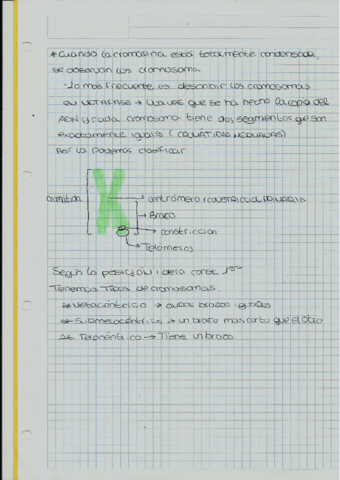 * Cuando la cromatina está totalmente condensada,
se observan los cromosomas.
· Lo más frecuente es describir los cromosomas
en METAFASE → que se ha hecho la copia del
ADN y cada cromosoma tiene dos segmentos que son
exactamente iguales (CROMÁTIDAS HERMANAS)
Así lo podemos clasificar
cromátida
→ centrómero constricción PRIMARIA
→ Brazo
→ constricción
→ Telómeros
Según la posición de la const. 1ria
Tenemos tipos de cromosomas.
* Metacéntrico → ambos brazos iguales
* Submetacéntrico → un brazo mas corto que el otro
* Telocéntrico → Tiene un brazo